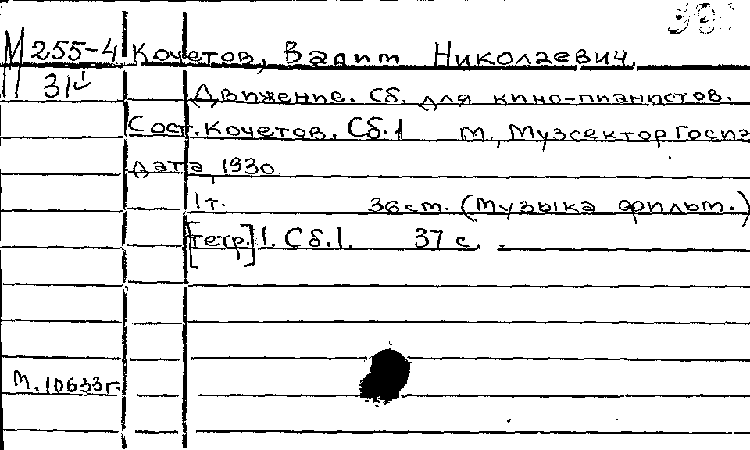 М 255-4 Кочетов, Вадим Николаевич
31
Движение. Сб. для кино-пианистов.
Сост. Кочетов. Сб. 1 М., Музсектор Госиз
дата, 1930
1 т. 36 см. (Музыка фильм.)
[тетр.] 1. Сб. 1. 37 с.
М. 10633 г.